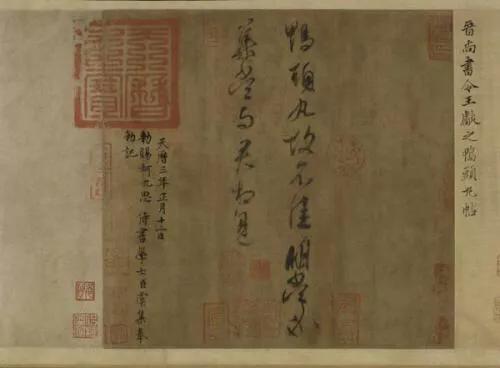 晉尚書令王獻之鴨頭丸帖
鴨頭丸故不佳明當必
集當與君相見
天曆之寶
天曆三年正月十二日
勑賜柯九思 侍書學士臣虞集奉
勑記